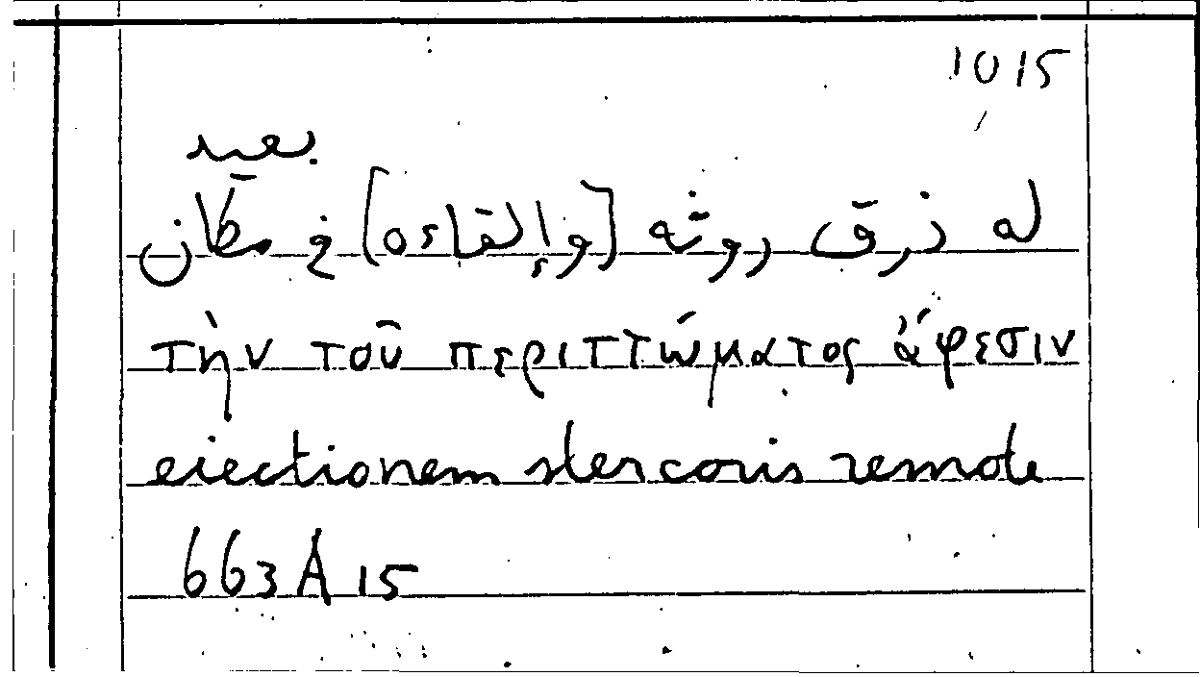 1015
بعيد
له زرق روثه [وإلقاءه] في مكان
τὴν τοῦ περιττώματος ἄφεσιν
eiectionem stercoris remote
663A15